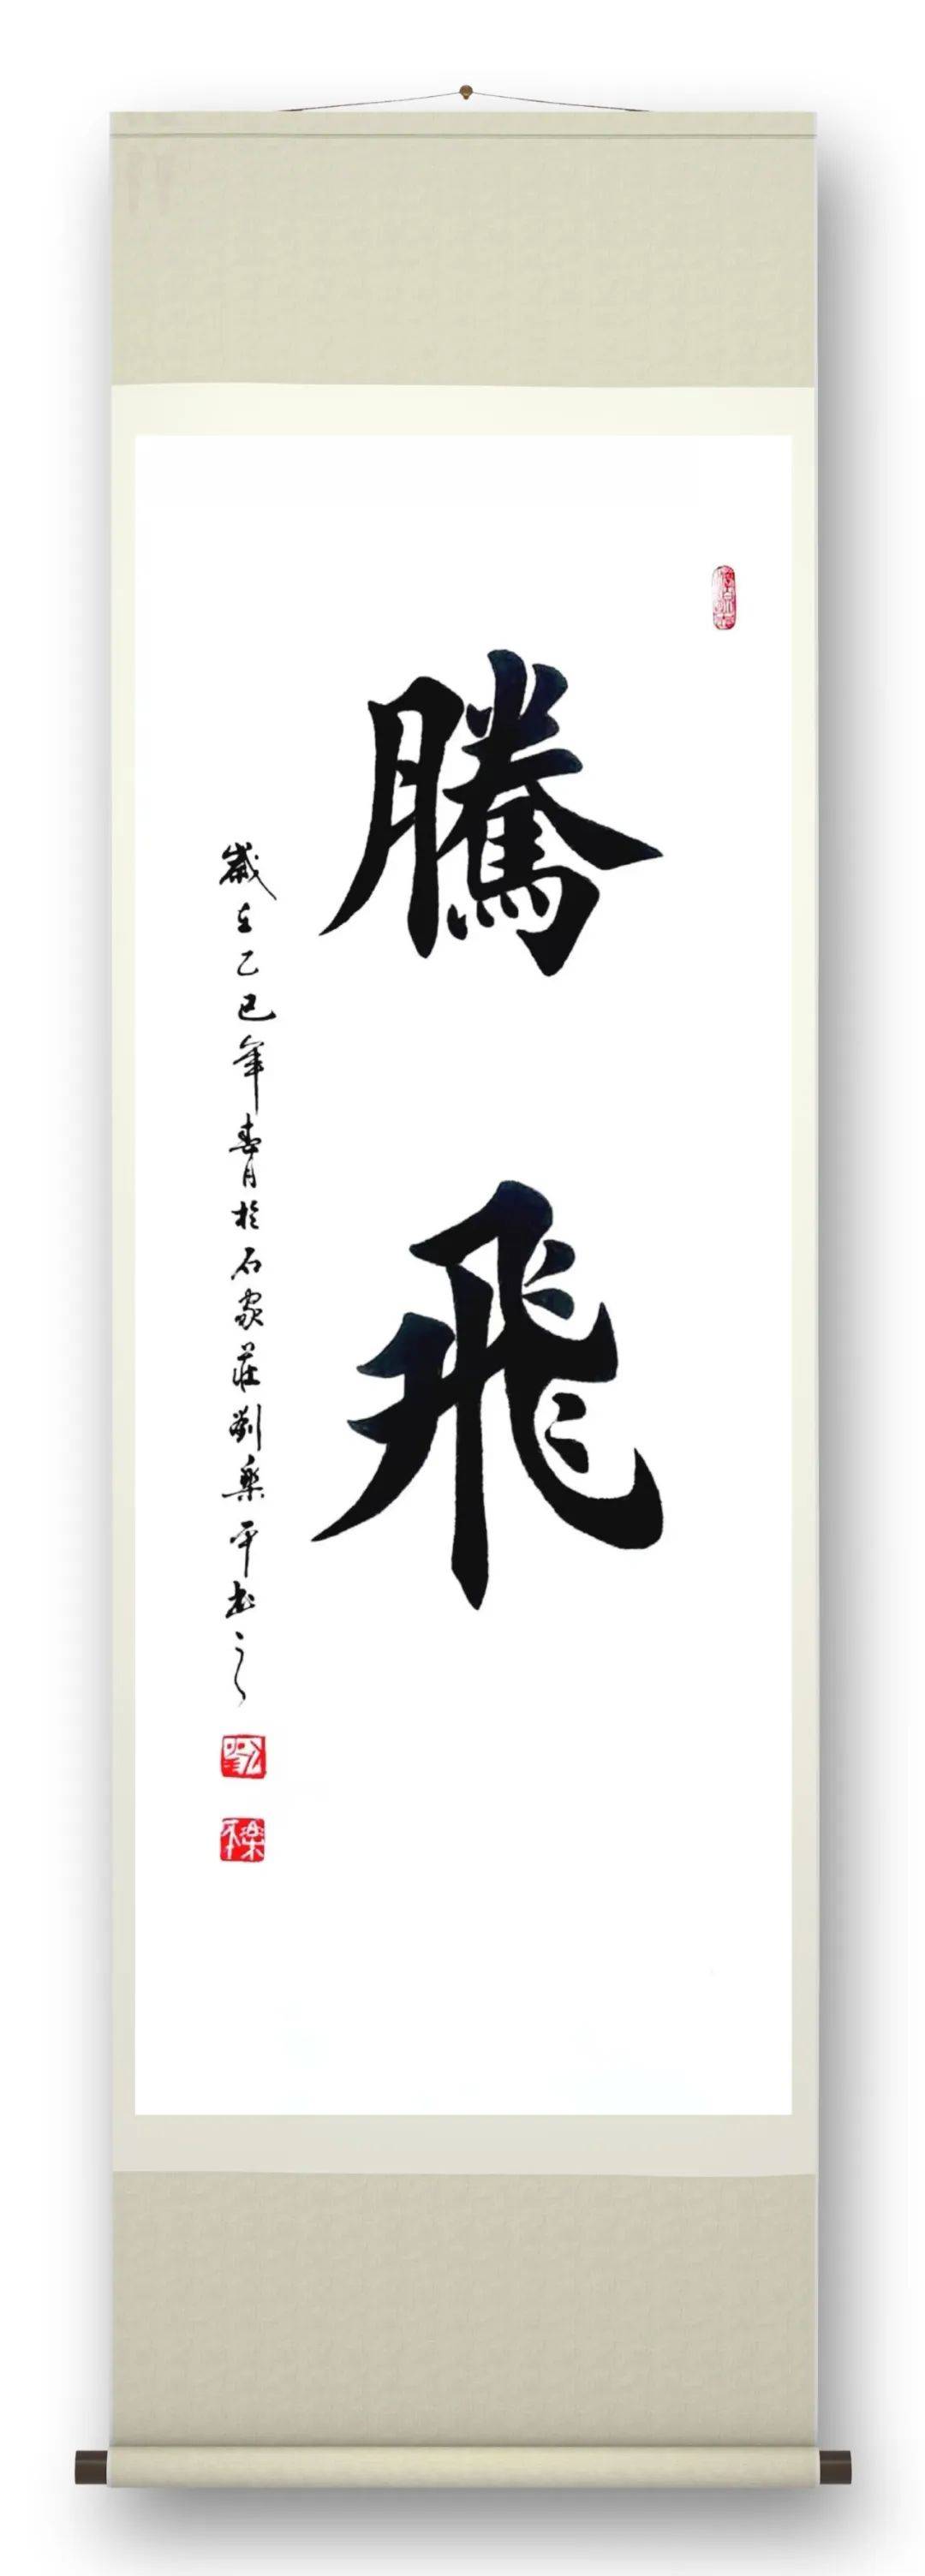 騰飛
歲在乙巳年春月於石家莊劉樂平書之